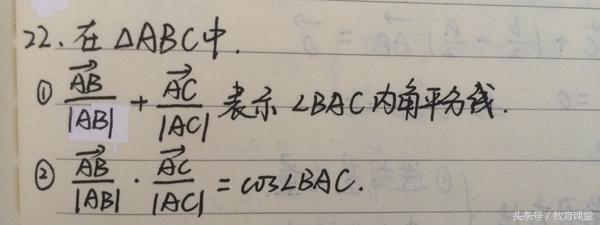 22. 在△ABC中.
① \frac{\vec{AB}}{|AB|} + \frac{\vec{AC}}{|AC|} 表示∠BAC内角平分线.
② \frac{\vec{AB}}{|AB|} · \frac{\vec{AC}}{|AC|} = cos∠BAC.
头条号 / 教育课堂